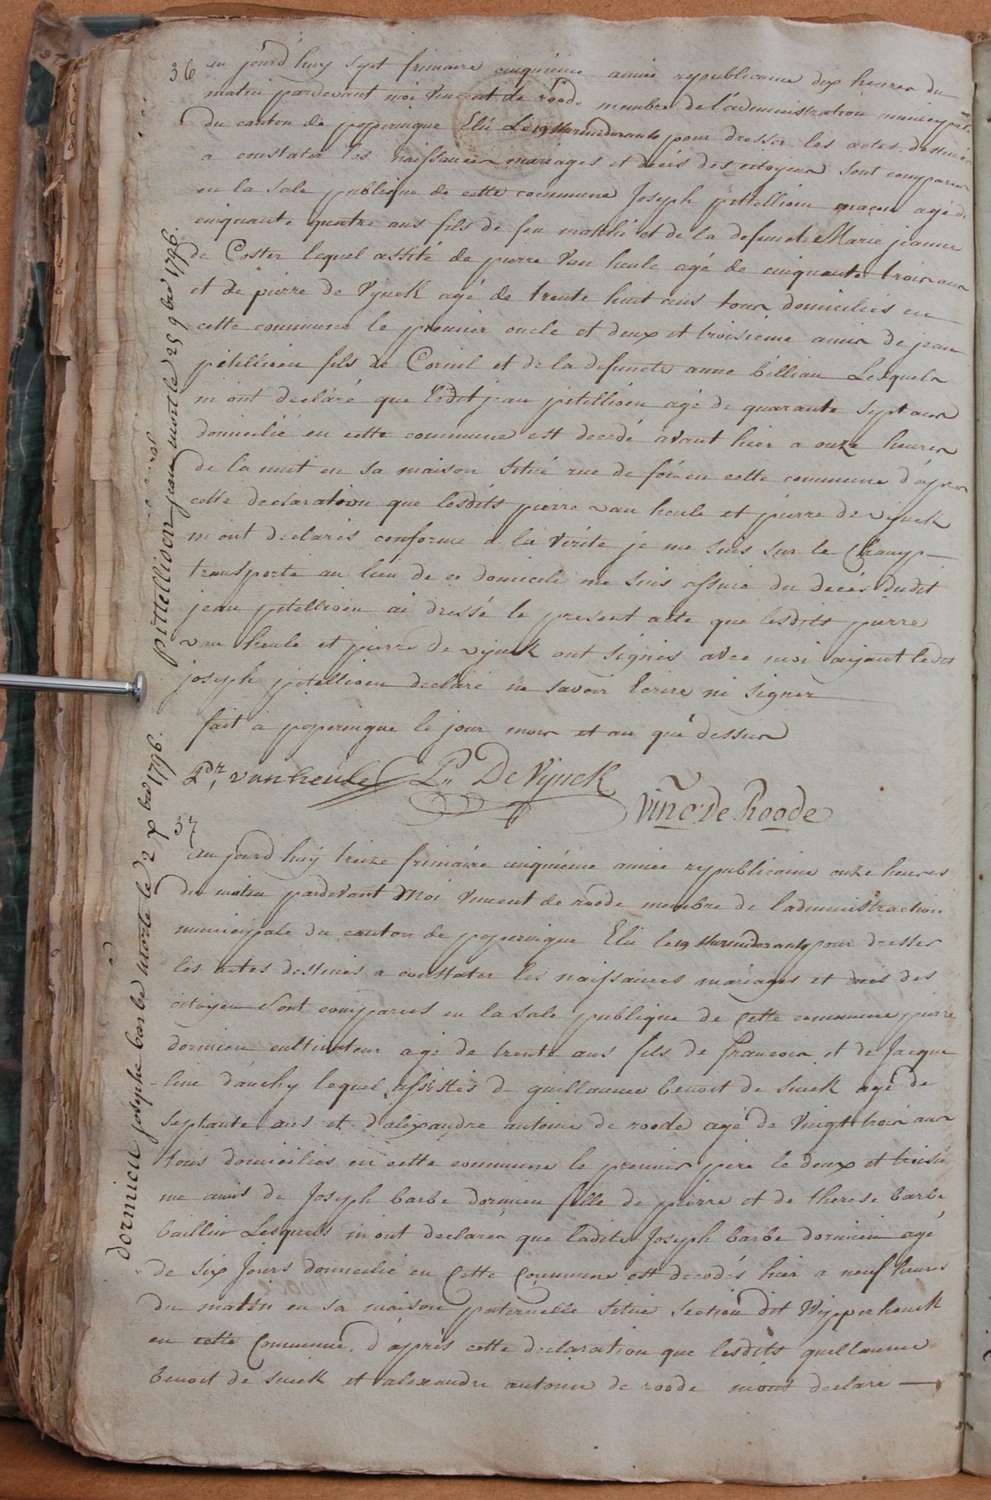 36
au jourd huy sept frimaire cinquième année republicaine dix heures du
matin pardevant moi Vincent de roode membre de l'administration municipale
du canton de poperingue Elu Le 19 thermidor an 4 pour dresser les actes destinés
a constater les naissances mariages et decès des citoyens sont comparus
en la sale publique de cette commune Joseph pitellioen maçon agé de
cinquante quatre ans fils de feu mathé et de la defuncte Marie jeanne
de Coster lequel assité de pierre Van heule agé de cinquante trois ans
et de pierre de Vynck agé de trente huit ans tous domiciliés en
cette commune le premier oncle et deux et troisieme amis de jean
pitellioen fils de Corneil et de la defuncte anne billiau Lesquels
m ont déclaré que Ledit jean pitellioen agé de quarante sept ans
domicilié en cette commune est decedé avant hier a onze heures
de la nuit en sa maison situé rue de foi en cette commune d'après
cette declaration que lesdits pierre van heule et pierre de vynck
m ont declarés conforme a la Vérité je me suis sur le Champ
transporté au lieu de ce domicile me suis assuré du decés dudit
jean pitellioen ai dressé le present acte que lesdits pierre
van heule et pierre de vynck ont signés avec moi aijant ledit
joseph pitellioen declaré ne savoir Ecrire ni signer
fait a poperingue le jour mois et an que dessus
Pr. vanheule P. De Vynck
Vinc. De Roode
37
Au jourd huij treize frimaire cinquième année republicaine onze heures
du matin pardevant Moi Vincent de roode membre de l'administration
municipale du canton de poperingue Elu le 19 thermidor an 4 pour dresser
les actes destinés a constater les naissances mariages et decès des
citoyens Sont comparus en la sale publique de cette commune pierre
dormieu cultivateur agé de trente ans fils de francois et de Jacque
line dauchy lequel assistés de guillaume benoit de Snick agé de
septante ans et d'alexandre antoine de roode agé de Vingt trois ans
tous domiciliés en cette commune le premier père le deux et troisie
me amis de Joseph barbe dormieu fille de pierre et de therese barbe
baillieu Lesquels m ont declarés que ladite Joseph barbe dormieu agé
de six Jours domicilié en Cette Commune est decedés hier a neuf heures
du matin en sa maison paternelle située section dit Wipperhouck
en cette Commune. d'après cette declaration que lesdits guillaume
benoit de snick et alexandre antoine de roode mont declaré
pittellioen jean mort le 25 9bre 1796.
dormieu josephe barbe morte le 2 xbre 1796.